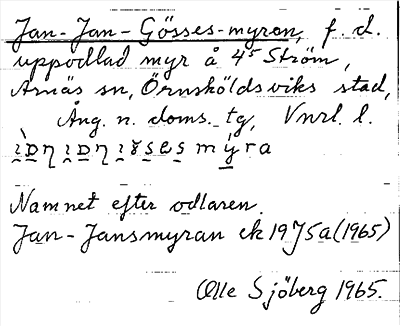 Jan-Jan-Gösses-myren, f. d.
uppodlad myr å 4⁵ Ström,
Arnäs sn, Örnsköldsviks stad,
Ång. n. doms. tg, Vnrl. l.
mýra
Namnet efter odlaren.
Jan-Jansmyran ek 19J5a (1965)
Olle Sjöberg 1965.